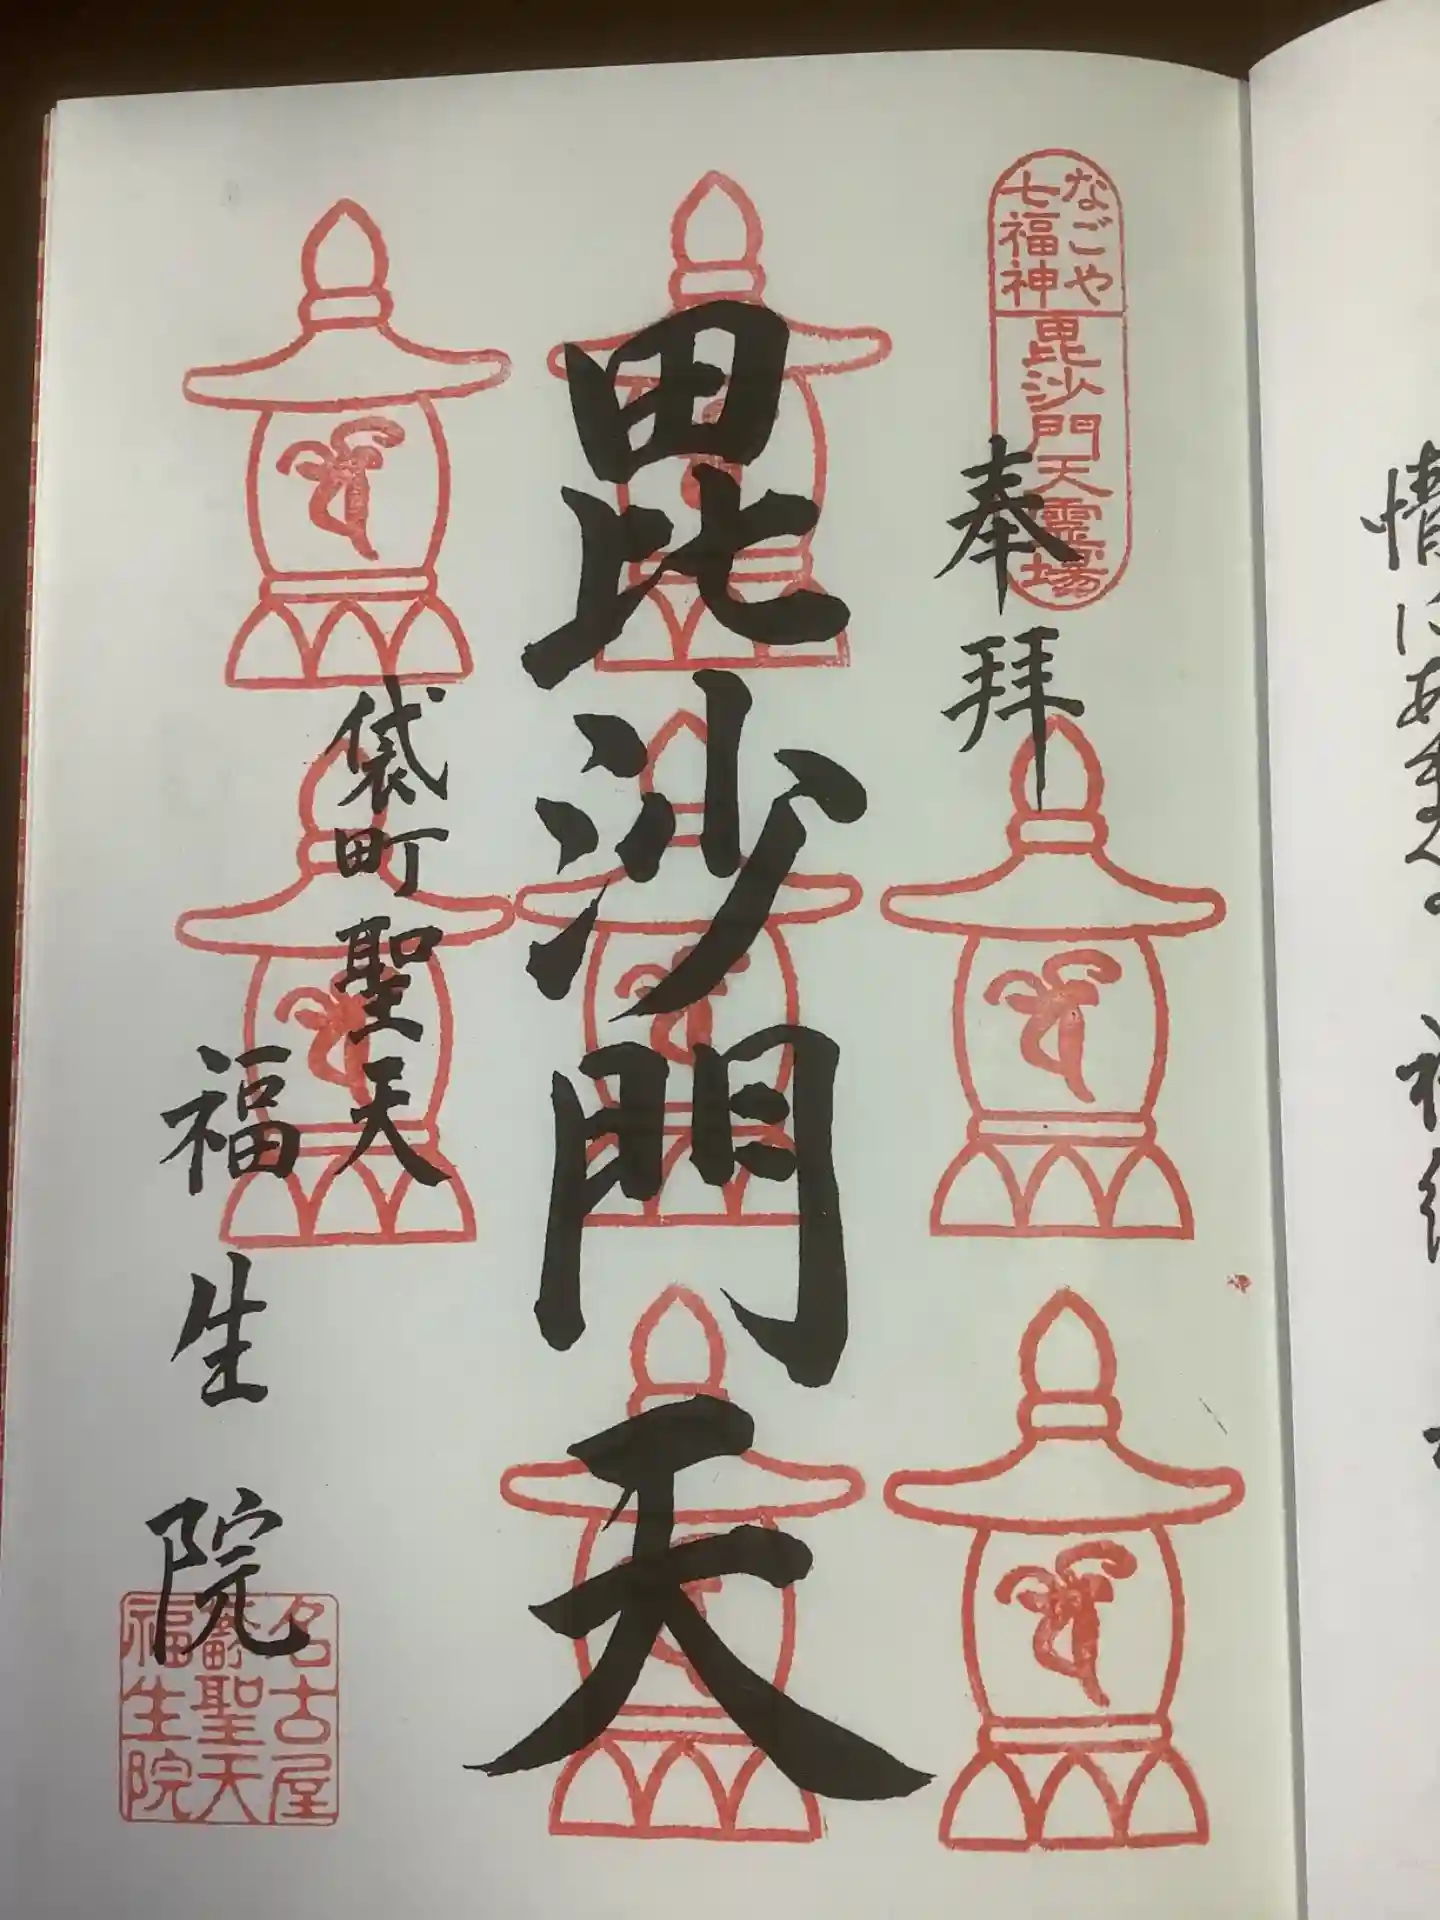 なごや
七福神
毘沙門天霊場
奉拝
毘沙門天
袋町聖天
福生院
名古屋
聖天
福生院
情にあ